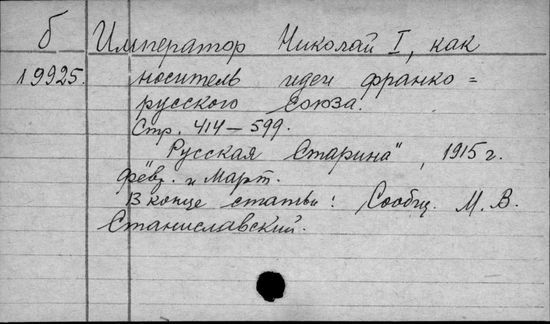 б
Император Николай I, как
19925. носитель идеи франко=
русского союза.
Стр. 414 — 599.
Русская Старина", 1915 г.
февр. и Март.
В конце статьи: Сообщ. М. В.
Станиславский.